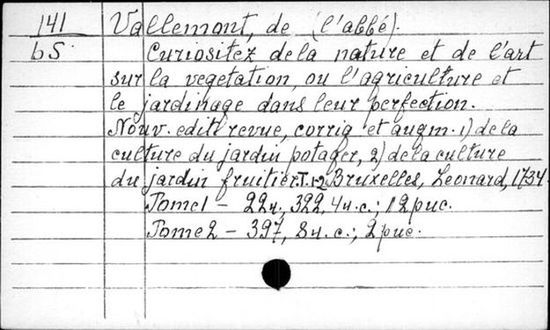 141 Vallemont, de (l'abbé).
bS. Curiositez de la nature et de l'art
sur la vegetation, ou l'agriculture et
le jardinage dans leur perfection.
Nouv. edit. revue, corrig et augm. 1) de la
culture du jardin potager, 2) de la culture
du jardin fruitier. T. 1-2. Bruxelles, Leonard, 1734.
Tome 1 – 22н., 322, 4н.с.; 12рис.
Tome 2 – 397, 8н.с.; 2рис.